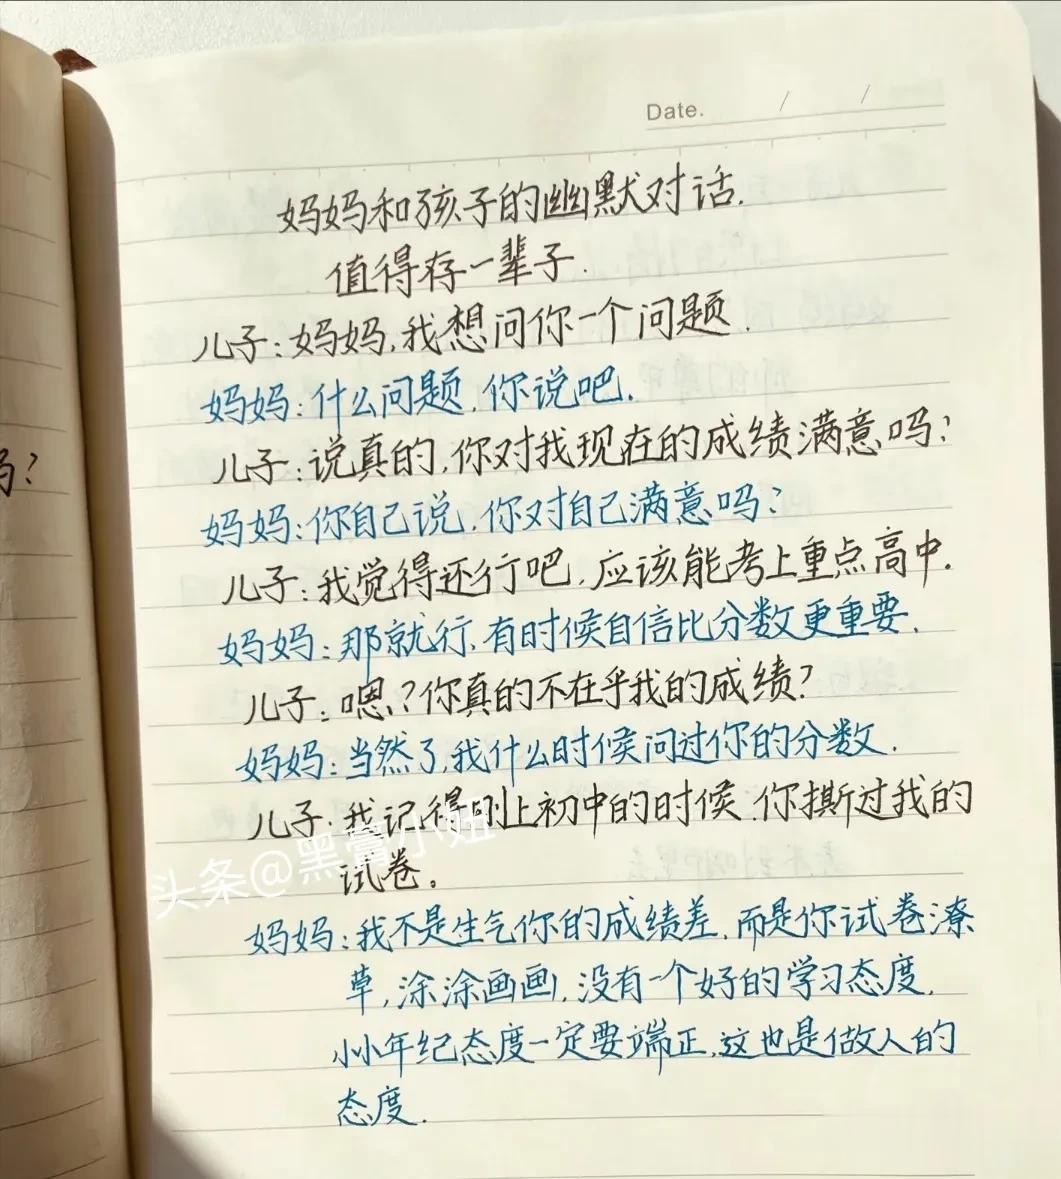 Date. / /
妈妈和孩子的幽默对话.
值得存一辈子.
儿子:妈妈,我想问你一个问题.
妈妈:什么问题.你说吧.
儿子:说真的,你对我现在的成绩满意吗?
妈妈:你自己说.你对自己满意吗?
儿子:我觉得还行吧,应该能考上重点高中.
妈妈:那就行、有时候自信比分数更重要.
儿子:嗯?你真的不在乎我的成绩?
妈妈:当然了,我什么时候问过你的分数.
儿子:我记得刚上初中的时候.你撕过我的
试卷。
头条@黑膏小妞
妈妈:我不是生气你的成绩差,而是你试卷潦
草,涂涂画画,没有一个好的学习态度.
小小年纪态度一定要端正,这也是做人的
态度.
吗?